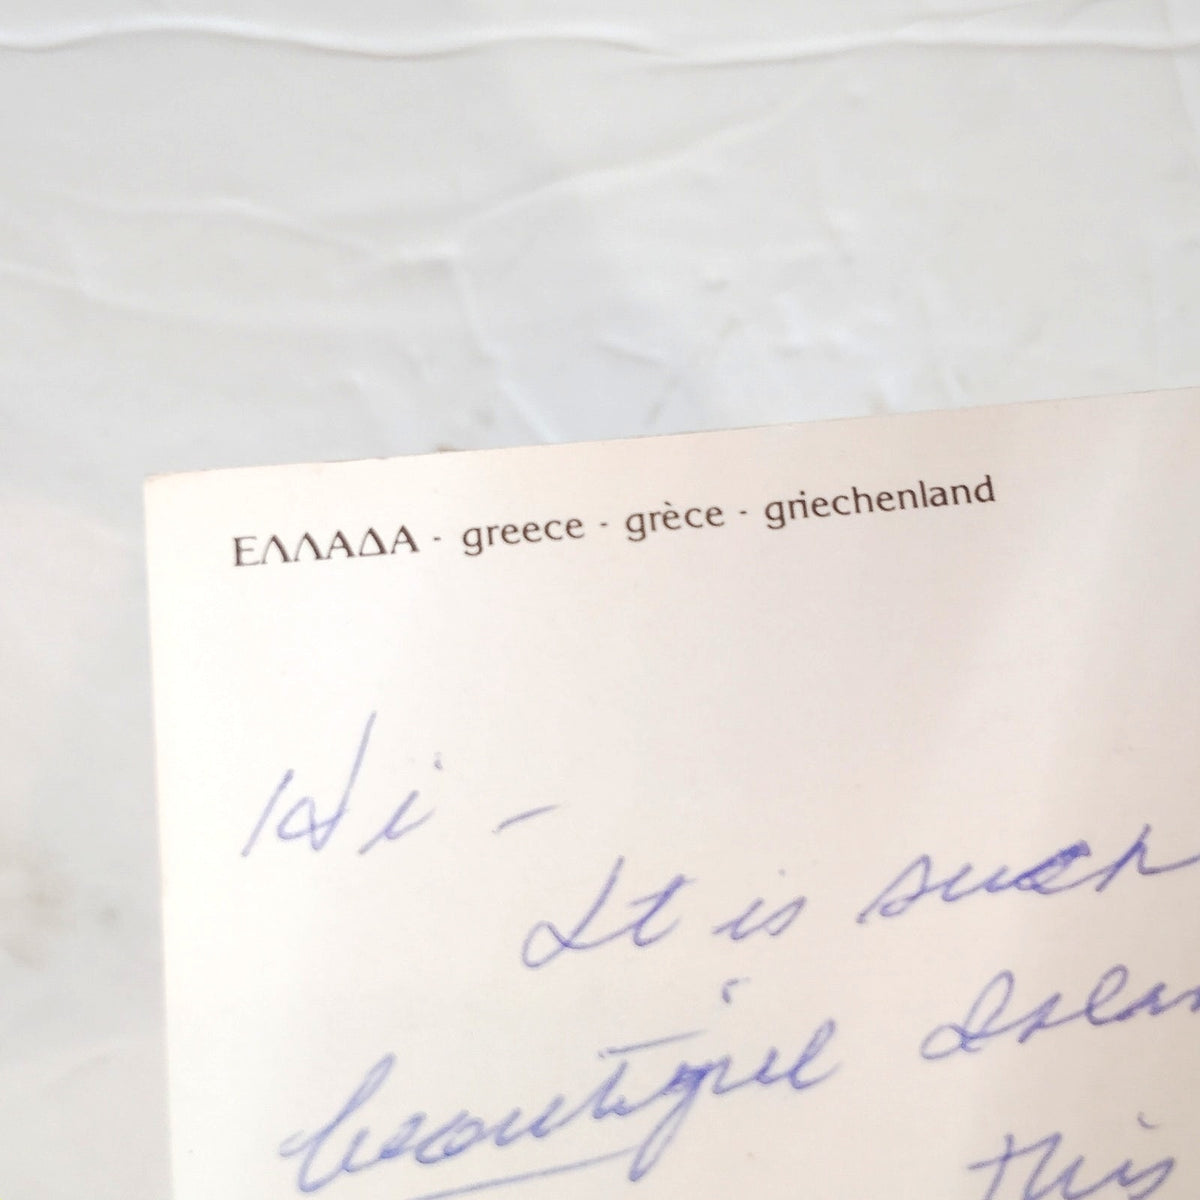 ΕΛΛΑΔΑ · greece · grèce · griechenland
Hi -
It is such
beautiful
this